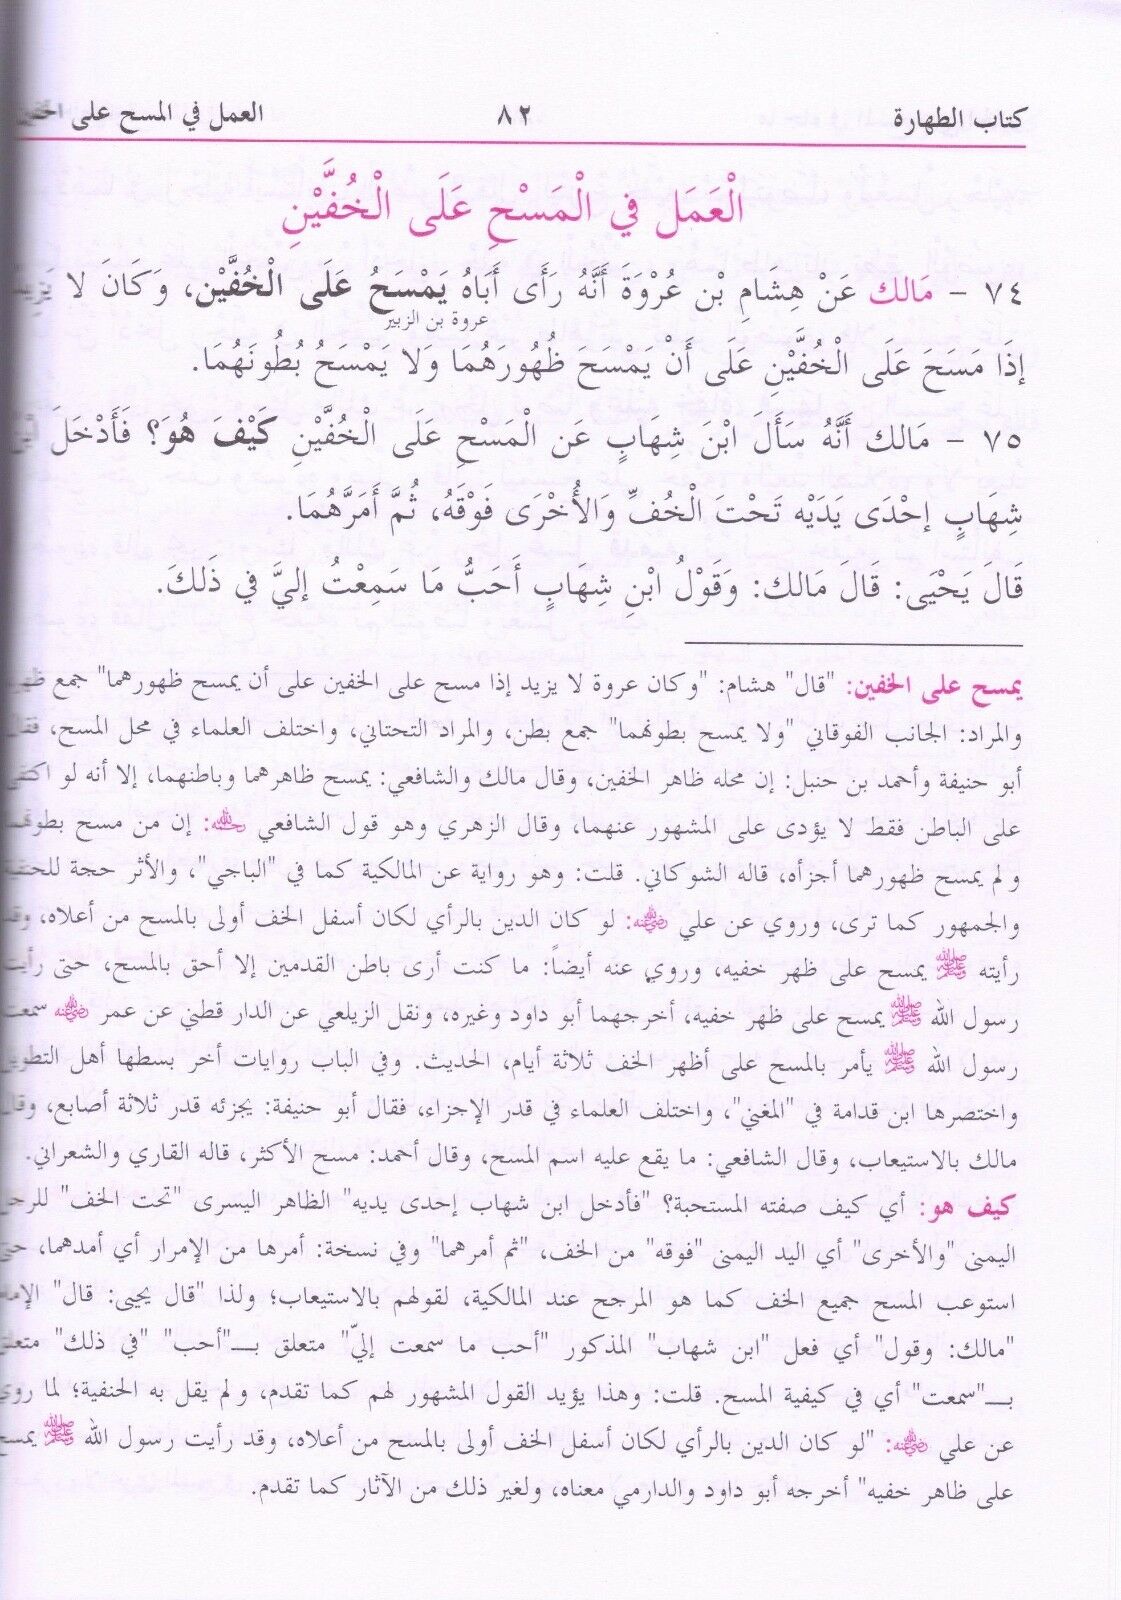 كتاب الطهارة
٨٢
العمل في المسح على الخفين
الْعَمَل فِي الْمَسْحِ عَلَى الْخُفَّيْنِ
٧٤ - مَالك عَنْ هِشَامِ بْن عُرْوَةَ أَنَّهُ رَأَى أَبَاهُ يَمْسَحُ عَلَى الْخُفَّيْن، وَكَانَ لا يَزِيدُ
عروة بن الزبير
إذَا مَسَحَ عَلَى الْخُفَّيْنِ عَلَى أَنْ يَمْسَحَ ظُهُورَهُمَا وَلا يَمْسَحُ بُطُونَهُمَا.
٧٥ - مَالك أَنَّهُ سَأَلَ ابْنَ شِهَابٍ عَن الْمَسْحِ عَلَى الْخُفَّيْنِ كَيْفَ هُوَ؟ فَأَدْخَلَ ابْنُ
شِهَابٍ إحْدَى يَدَيْه تَحْتَ الْخُفِّ وَالأُخْرَى فَوْقَهُ، ثُمَّ أَمَرَّهُمَا.
قَالَ يَحْيَى: قَالَ مَالك: وَقَوْلُ ابْنِ شِهَابٍ أَحَبُّ مَا سَمِعْتُ إليَّ فِي ذَلكَ.
يمسح على الخفين: "قال" هشام: "وكان عروة لا يزيد إذا مسح على الخفين على أن يمسح ظهورهما" جمع ظهر،
والمراد: الجانب الفوقاني "ولا يمسح بطونهما" جمع بطن، والمراد التحتاني، واختلف العلماء في محل المسح، فقال
أبو حنيفة وأحمد بن حنبل: إن محله ظاهر الخفين، وقال مالك والشافعي: يمسح ظاهرهما وباطنهما، إلا أنه لو اكتفى
على الباطن فقط لا يؤدى على المشهور عنهما، وقال الزهري وهو قول الشافعي رحمه الله: إن من مسح بطونهما
ولم يمسح ظهورهما أجزأه، قاله الشوكاني. قلت: وهو رواية عن المالكية كما في "الباجي"، والأثر حجة للحنفية
والجمهور كما ترى، وروي عن علي رضي الله عنه: لو كان الدين بالرأي لكان أسفل الخف أولى بالمسح من أعلاه، وقد
رأيته ﷺ يمسح على ظهر خفيه، وروي عنه أيضاً: ما كنت أرى باطن القدمين إلا أحق بالمسح، حتى رأيت
رسول الله ﷺ يمسح على ظهر خفيه، أخرجهما أبو داود وغيره، ونقل الزيلعي عن الدار قطني عن عمر رضي الله عنه سمعت
رسول الله ﷺ يأمر بالمسح على أظهر الخف ثلاثة أيام، الحديث. وفي الباب روايات أخر بسطها أهل التطويل
واختصرها ابن قدامة في "المغني"، واختلف العلماء في قدر الإجزاء، فقال أبو حنيفة: يجزئه قدر ثلاثة أصابع، وقال
مالك بالاستيعاب، وقال الشافعي: ما يقع عليه اسم المسح، وقال أحمد: مسح الأكثر، قاله القاري والشعراني.
كيف هو: أي كيف صفته المستحبة؟ "فأدخل ابن شهاب إحدى يديه" الظاهر اليسرى "تحت الخف" للرجل
اليمنى "والأخرى" أي اليد اليمنى "فوقه" من الخف، "ثم أمرهما" وفي نسخة: أمرها من الإمرار أي أمدهما، حتى
استوعب المسح جميع الخف كما هو المرجح عند المالكية، لقولهم بالاستيعاب؛ ولذا "قال يحيى: قال" الإمام
"مالك: وقول" أي فعل "ابن شهاب" المذكور "أحب ما سمعت إليّ" متعلق بـ"أحب" "في ذلك" متعلق
بـ"سمعت" أي في كيفية المسح. قلت: وهذا يؤيد القول المشهور لهم كما تقدم، ولم يقل به الحنفية؛ لما روي
عن علي رضي الله عنه: "لو كان الدين بالرأي لكان أسفل الخف أولى بالمسح من أعلاه، وقد رأيت رسول الله ﷺ يمسح
على ظاهر خفيه" أخرجه أبو داود والدارمي معناه، ولغير ذلك من الآثار كما تقدم.